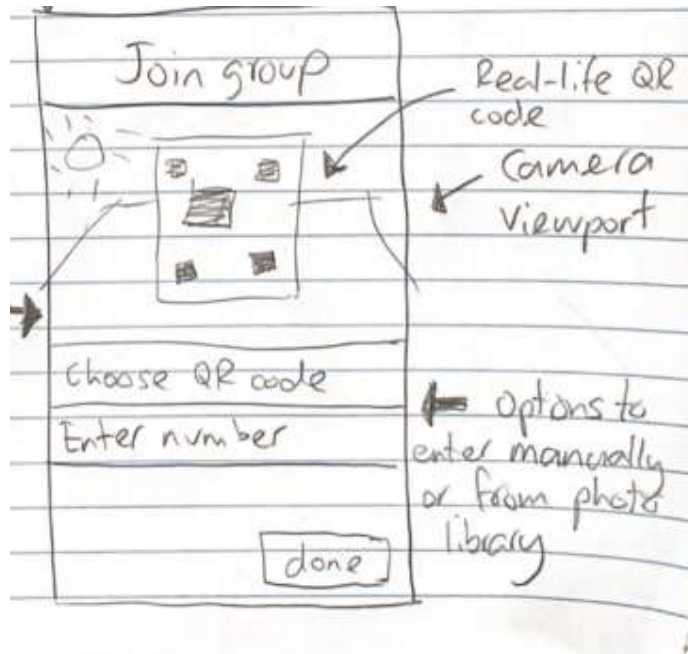 Join group
Real-life QR
code
Camera
viewport
Choose QR code
Enter number
Options to
enter manually
or from photo
library
done